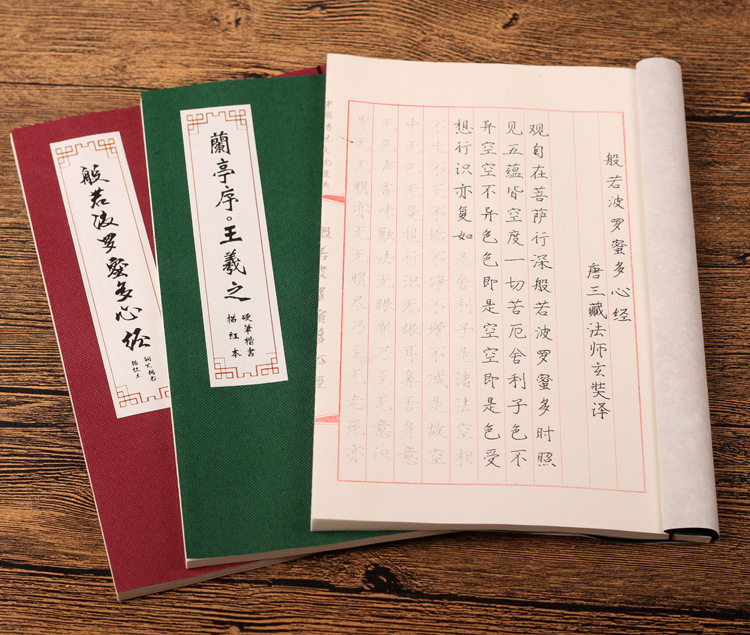 般若波罗蜜多心经
唐三藏法师玄奘译
观自在菩萨行深般若波罗蜜多时照
见五蕴皆空度一切苦厄舍利子色不
异空空不异色色即是空空即是色受
想行识亦复如是舍利子是诸法空相
不生不灭不垢不净不增不减是故空
中无色无受想行识无眼耳鼻舌身意
无色声香味触法无眼界乃至无意识
界无无明亦无无明尽乃至无老死亦
般若波罗蜜多心经
蘭亭序。王羲之
硬筆楷書
描红本
般若波罗蜜多心经
描红本